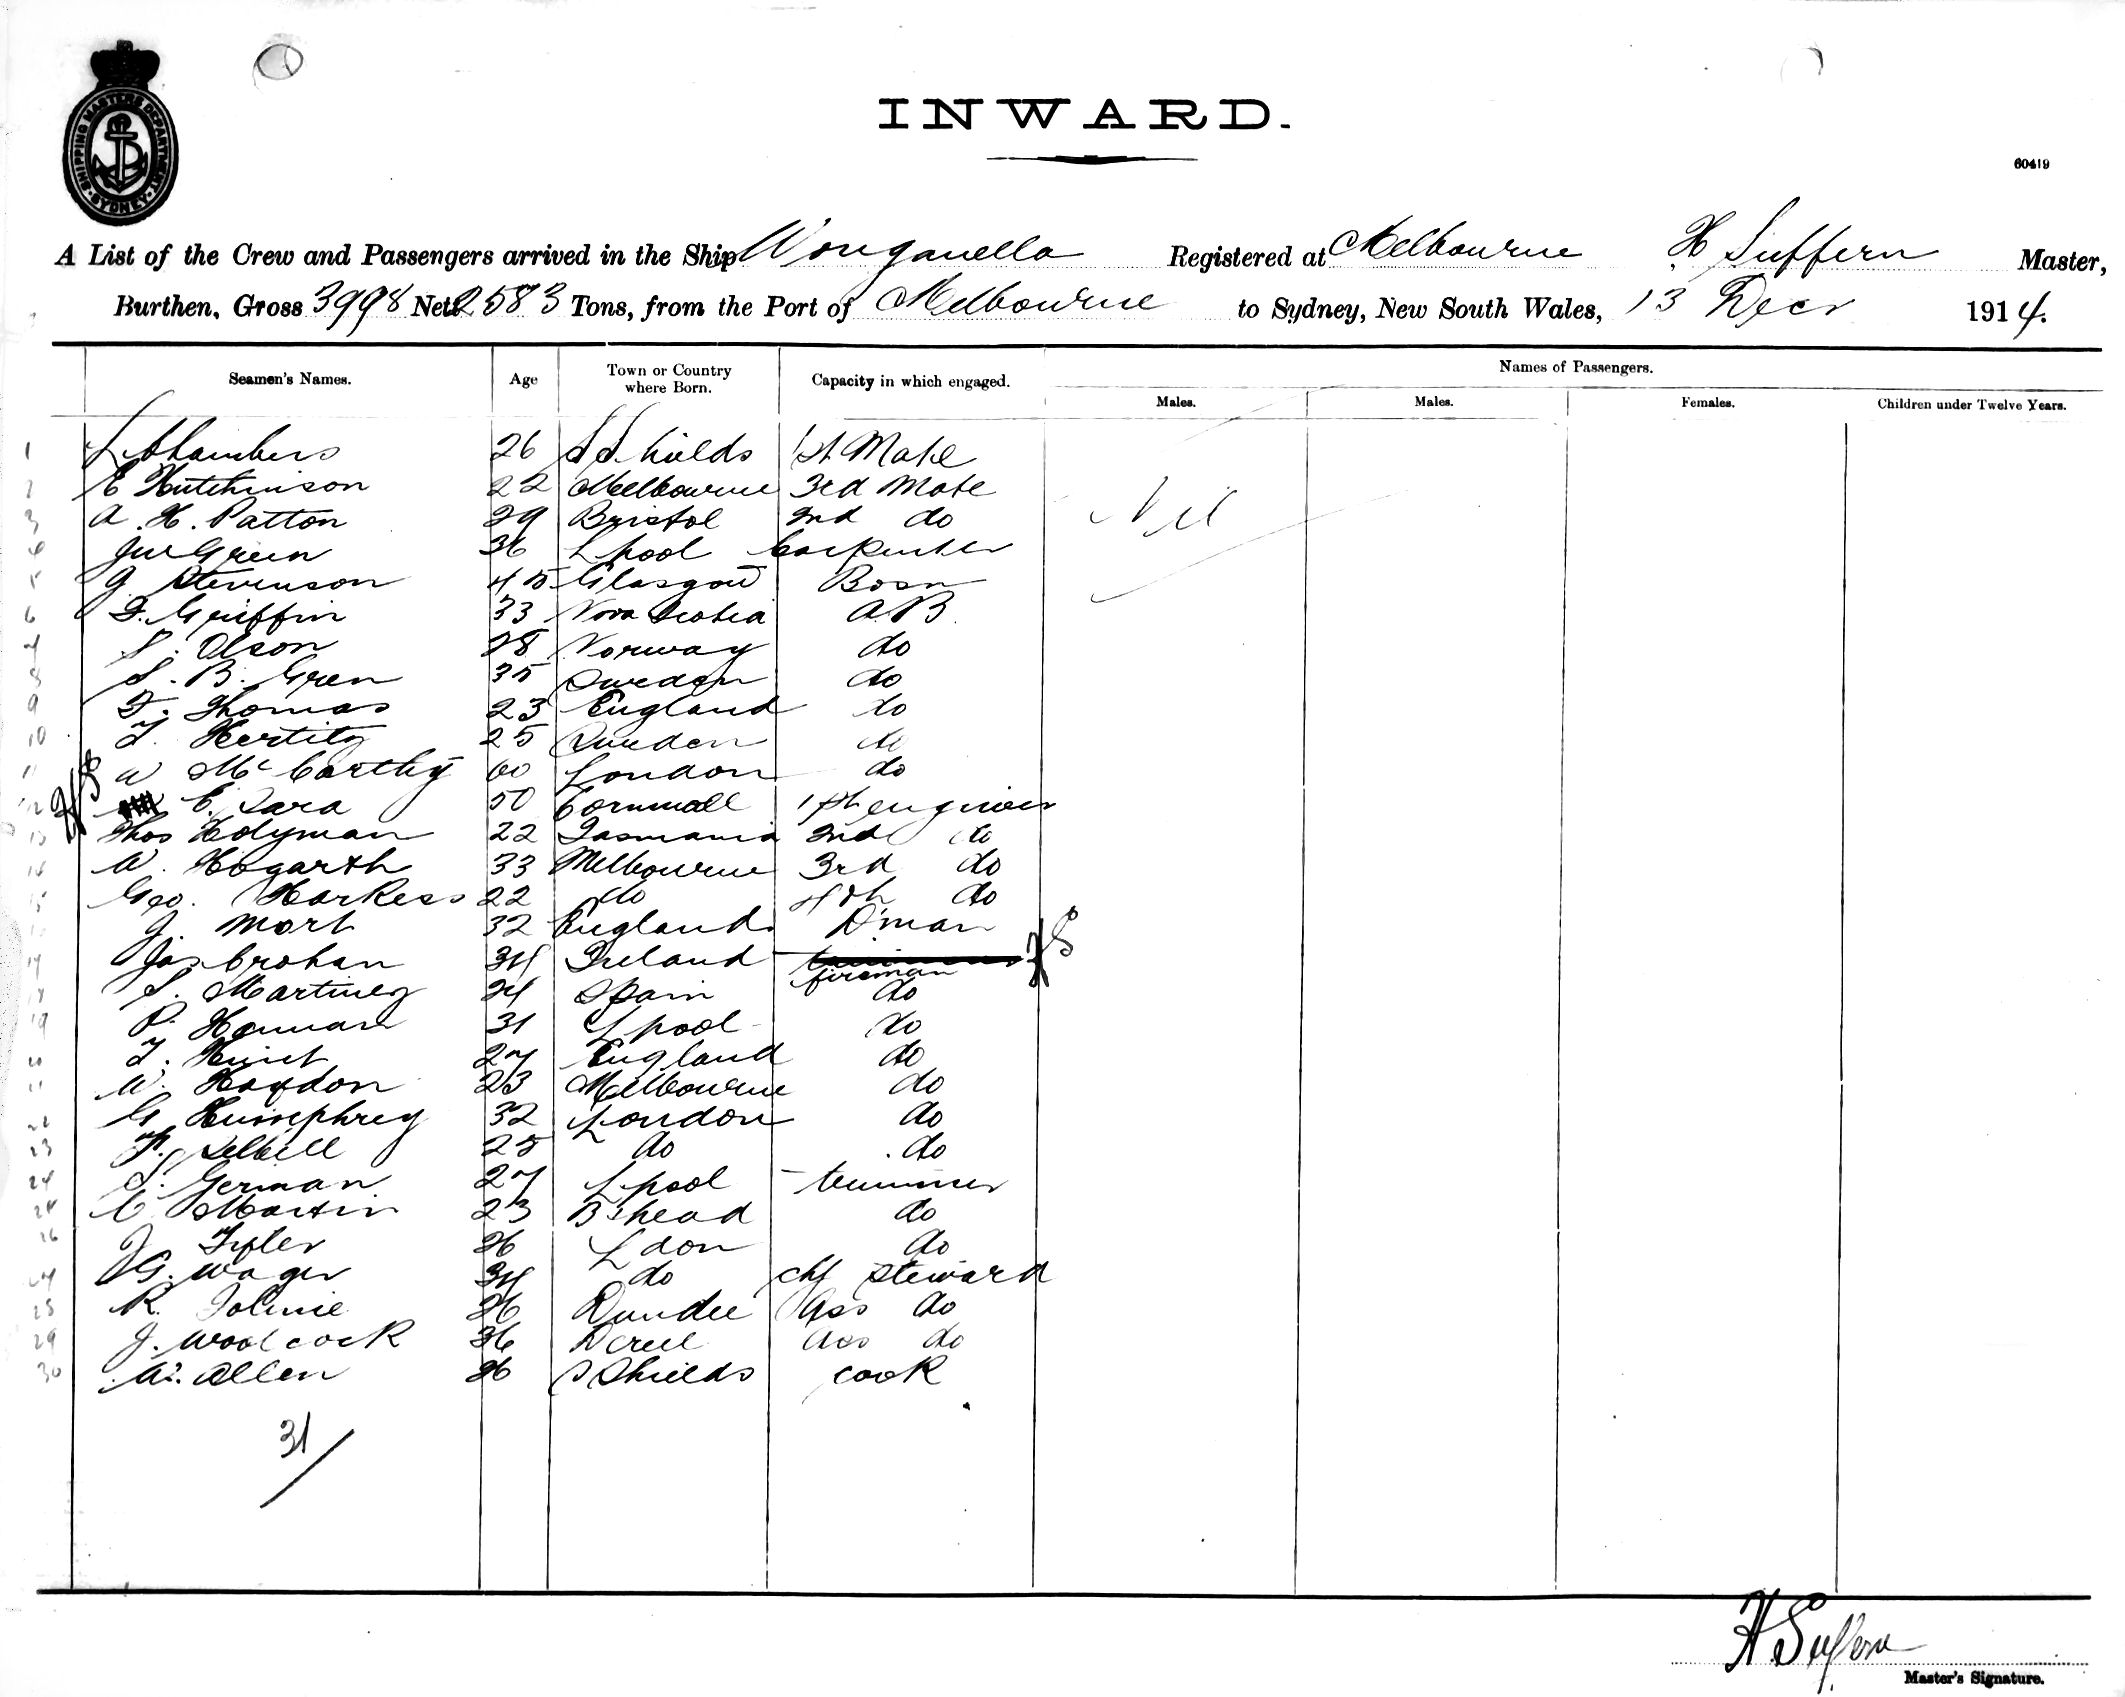 SHIPPING MASTERS DEPARTMENT
SYDNEY
INWARD.
60419
A List of the Crew and Passengers arrived in the Ship Wonganella Registered at Melbourne H Suffern Master,
Burthen, Gross 3998 Nett 2583 Tons, from the Port of Melbourne to Sydney, New South Wales, 13 Decr 1914.
Seamen's Names. Age Town or Country where Born. Capacity in which engaged. Names of Passengers.
Males. Males. Females. Children under Twelve Years.
1 L Chambers 26 S Shields 1st Mate
2 E Hutchinson 22 Melbourne 3rd Mate
3 A. H. Patton 29 Bristol 2nd do Nil
Jno Green 36 L pool Carpenter
5 J Stevenson 45 Glasgow Bosn
6 F. Griffin 33 Nova Scotia AB.
7 S. Olson 28 Norway do
8 S. B. Gren 35 Sweden do
9 F. Thomas 23 England do
10 25 Sweden do
W McCarthy 60 London do
12 C. 50 Cornwall 1st engineer
13 Thos Holyman 22 Tasmania 2nd do
14 W. Hogarth 33 Melbourne 3rd do
15 Geo. Harkess 22 do 4th do
J. Mort 32 England D'man
17 Jas Crohan 34 Ireland fireman
18 S. Martinez 24 Spain do
19 P. Hannan 31 L pool do
20 T. 27 England do
W. Haydon 23 Melbourne do
22 G Humphrey 32 London do
23 25 do do
24 S. German 27 L pool trimmer
C Martin 23 B'head do
26 J 26 L don do
27 G. Wager 34 do chf steward
28 R. Tolmie 26 Dundee Ass do
29 J. Woolcock 36 Ass do
30 A. Allen 26 S Shields cook
31
H Suffern
Master's Signature.